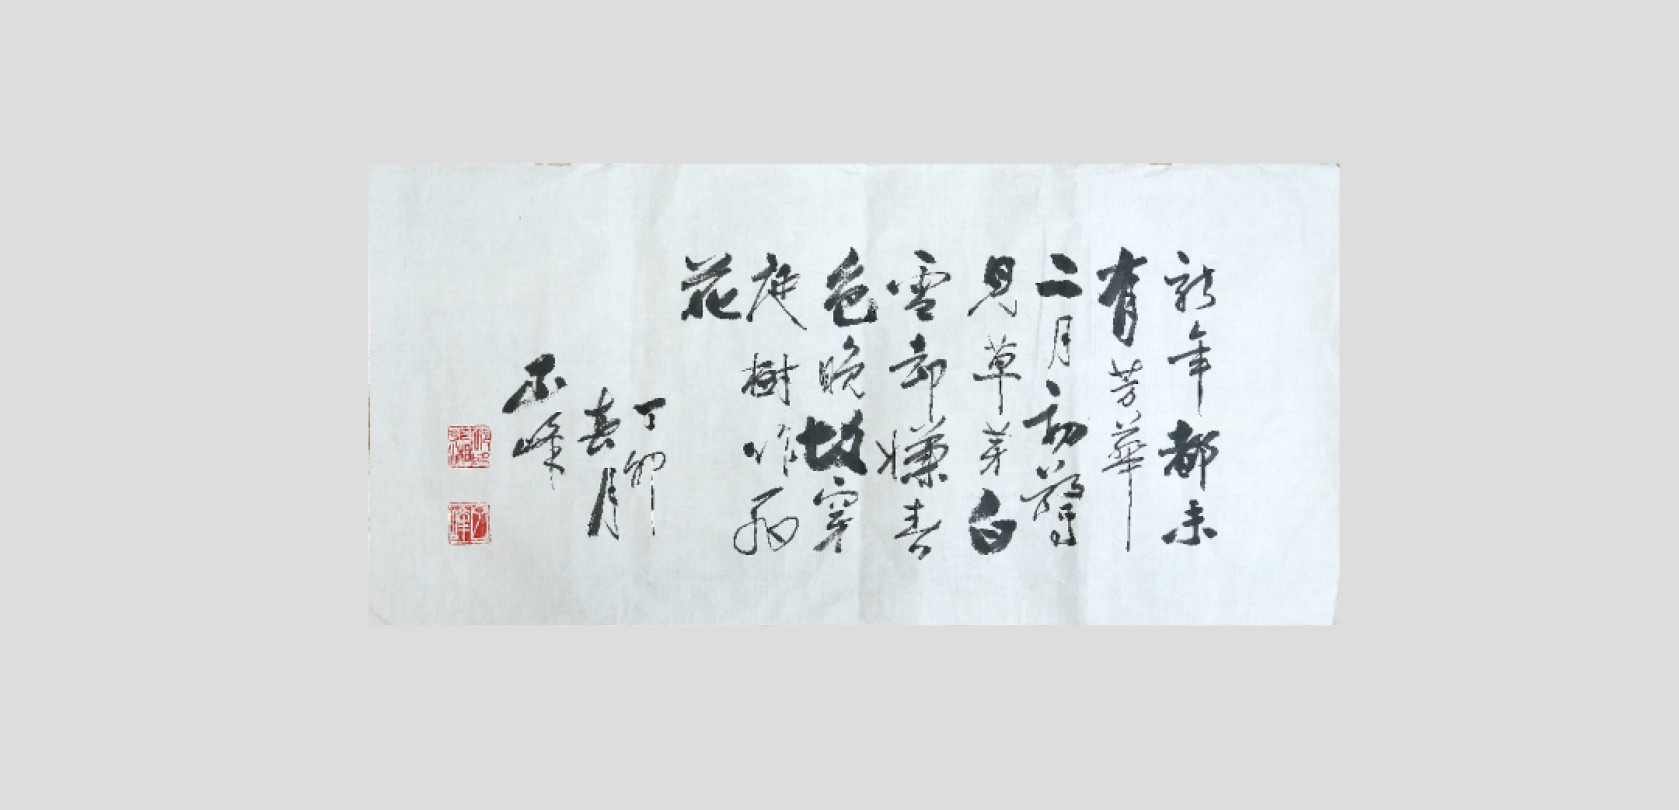 新年都未
有芳華
二月初驚
見草芽白
雪却嫌春
色晚故穿
庭樹作飛
花
丁卯
春月
峰